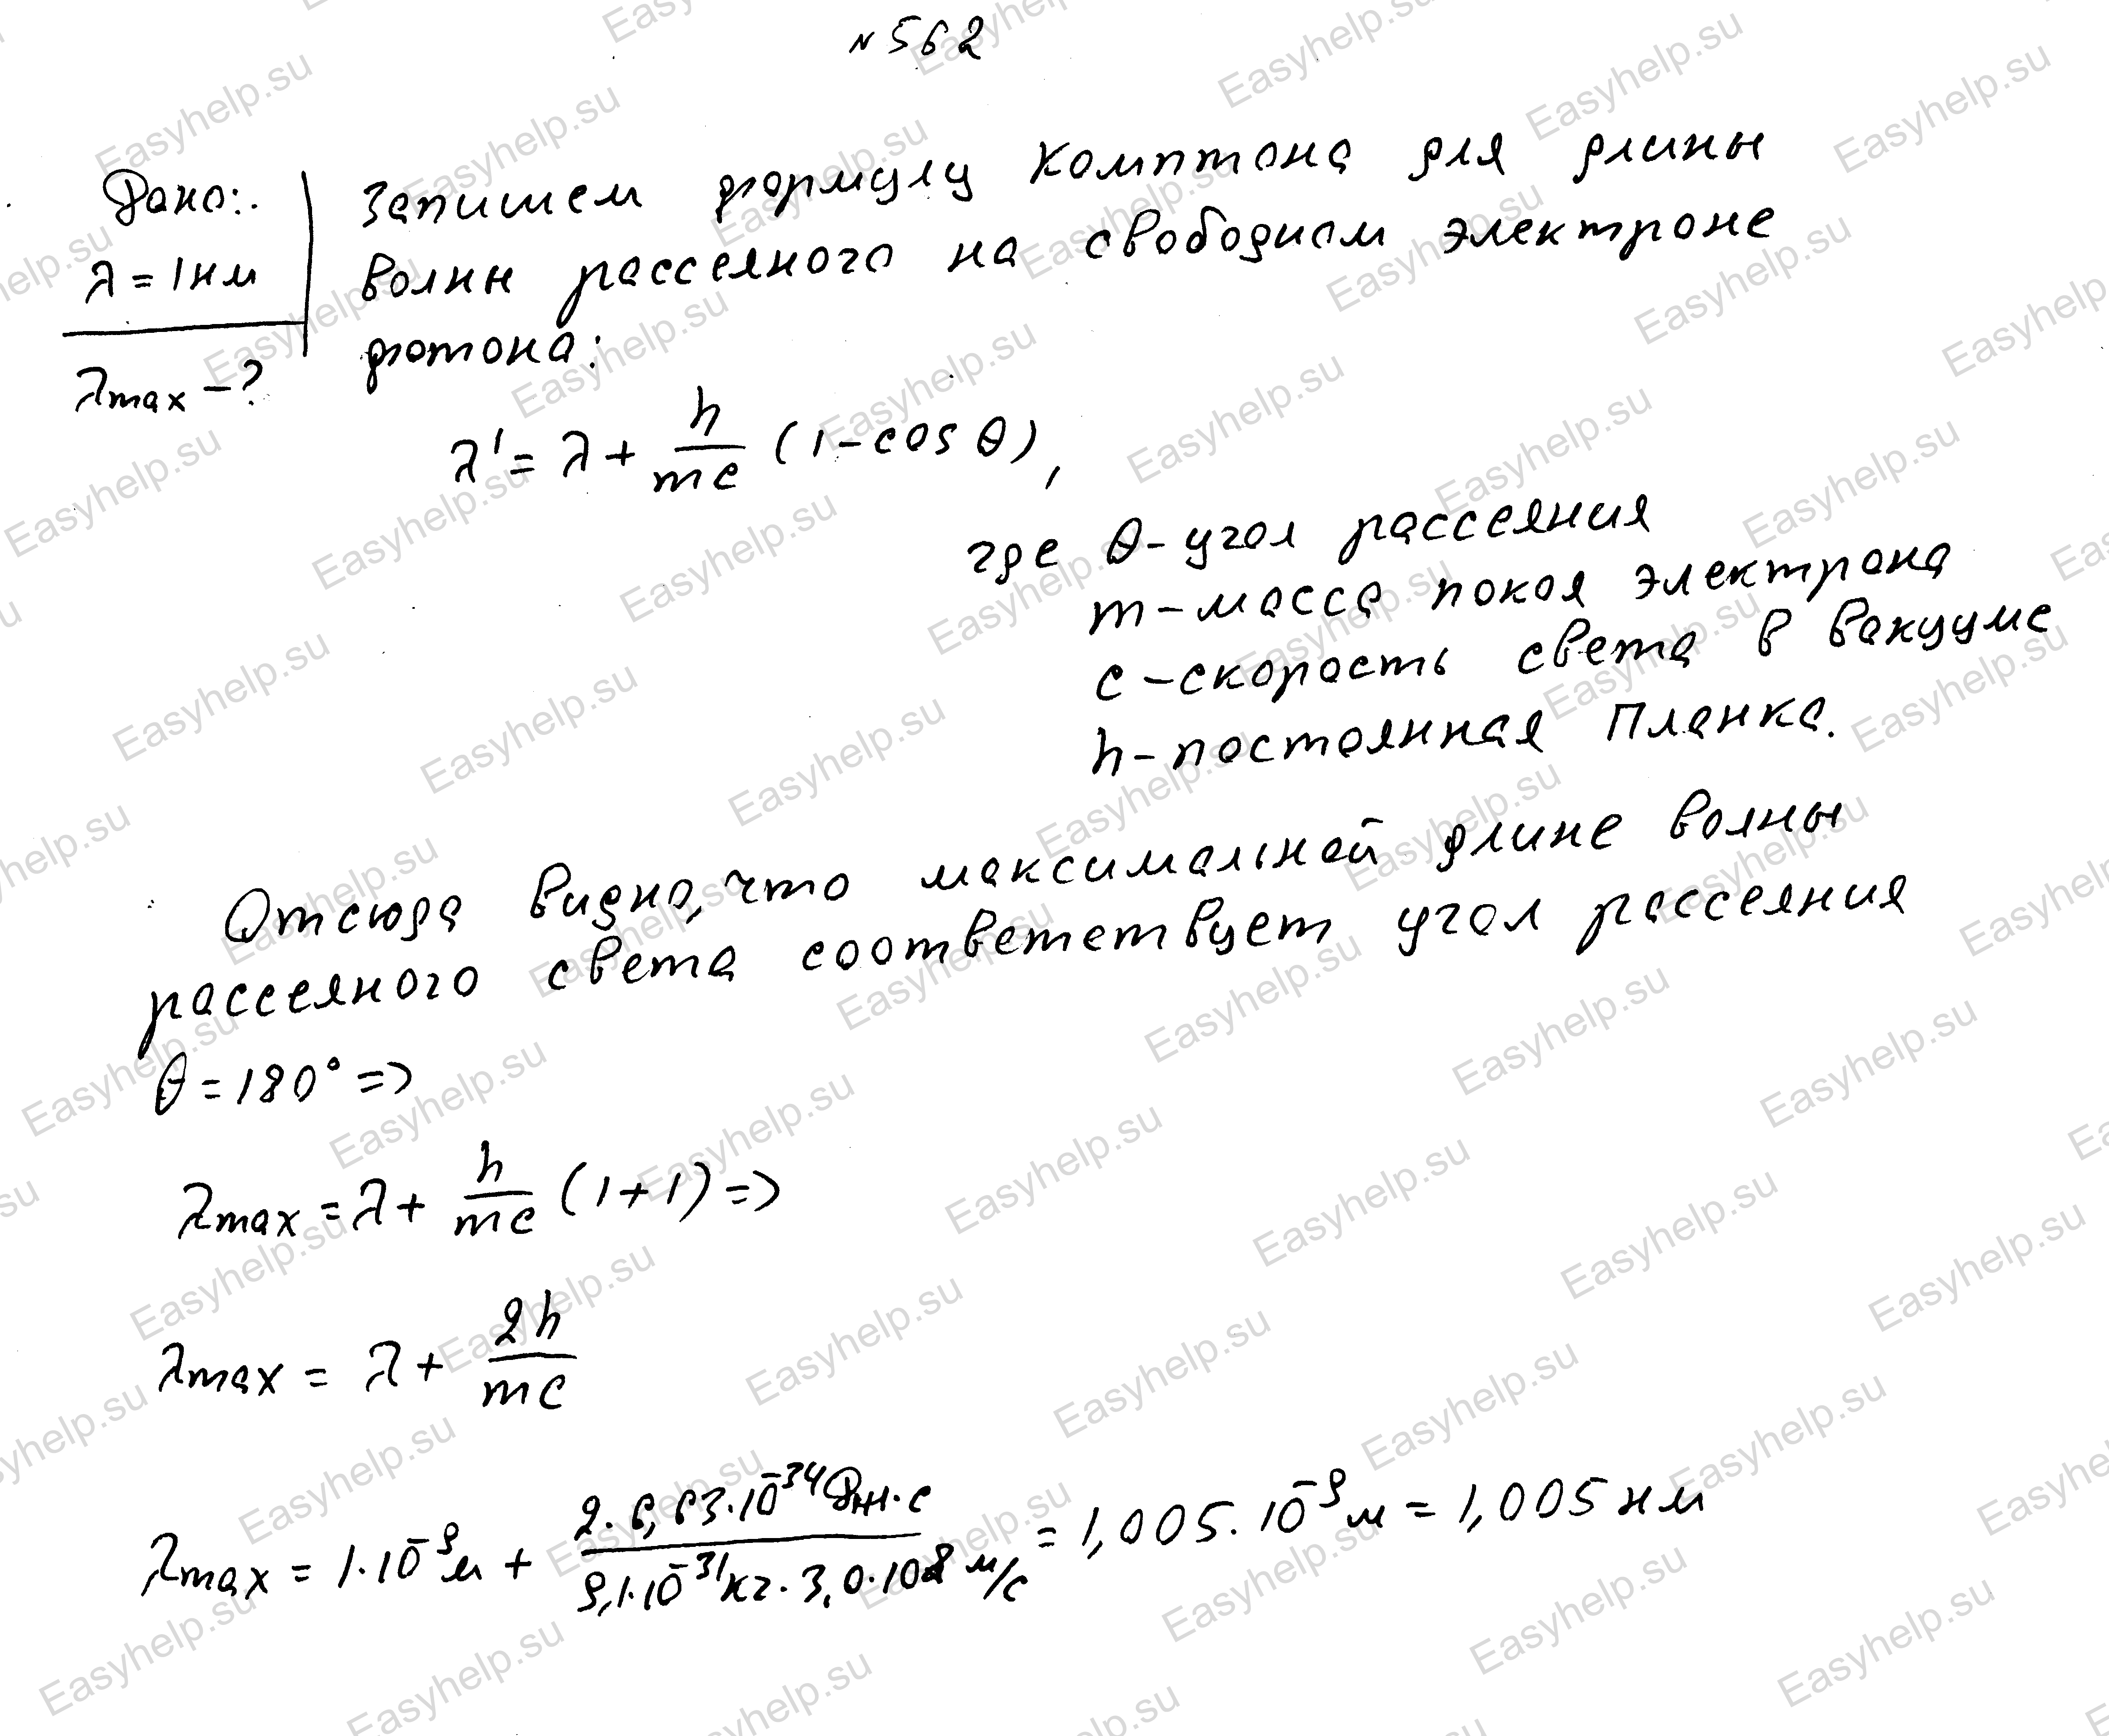 №562
Дано:
λ = 1 нм
λmax - ?
Запишем формулу Комптона для длины
волны рассеяного на свободном электроне
фотона:
λ' = λ + h/mc (1 - cos θ),
где θ - угол рассеяния
m - масса покоя электрона
c - скорость света в вакууме
h - постоянная Планка.
Отсюда видно, что максимальной длине волны
рассеяного света соответствует угол рассеяния
θ = 180° =>
λmax = λ + h/mc (1 + 1) =>
λmax = λ + 2h/mc
λmax = 1·10⁻⁹ м + 2·6,63·10⁻³⁴ Дж·с / 9,1·10⁻³¹ кг·3,0·10⁸ м/с = 1,005·10⁻⁹ м = 1,005 нм
Easyhelp.su